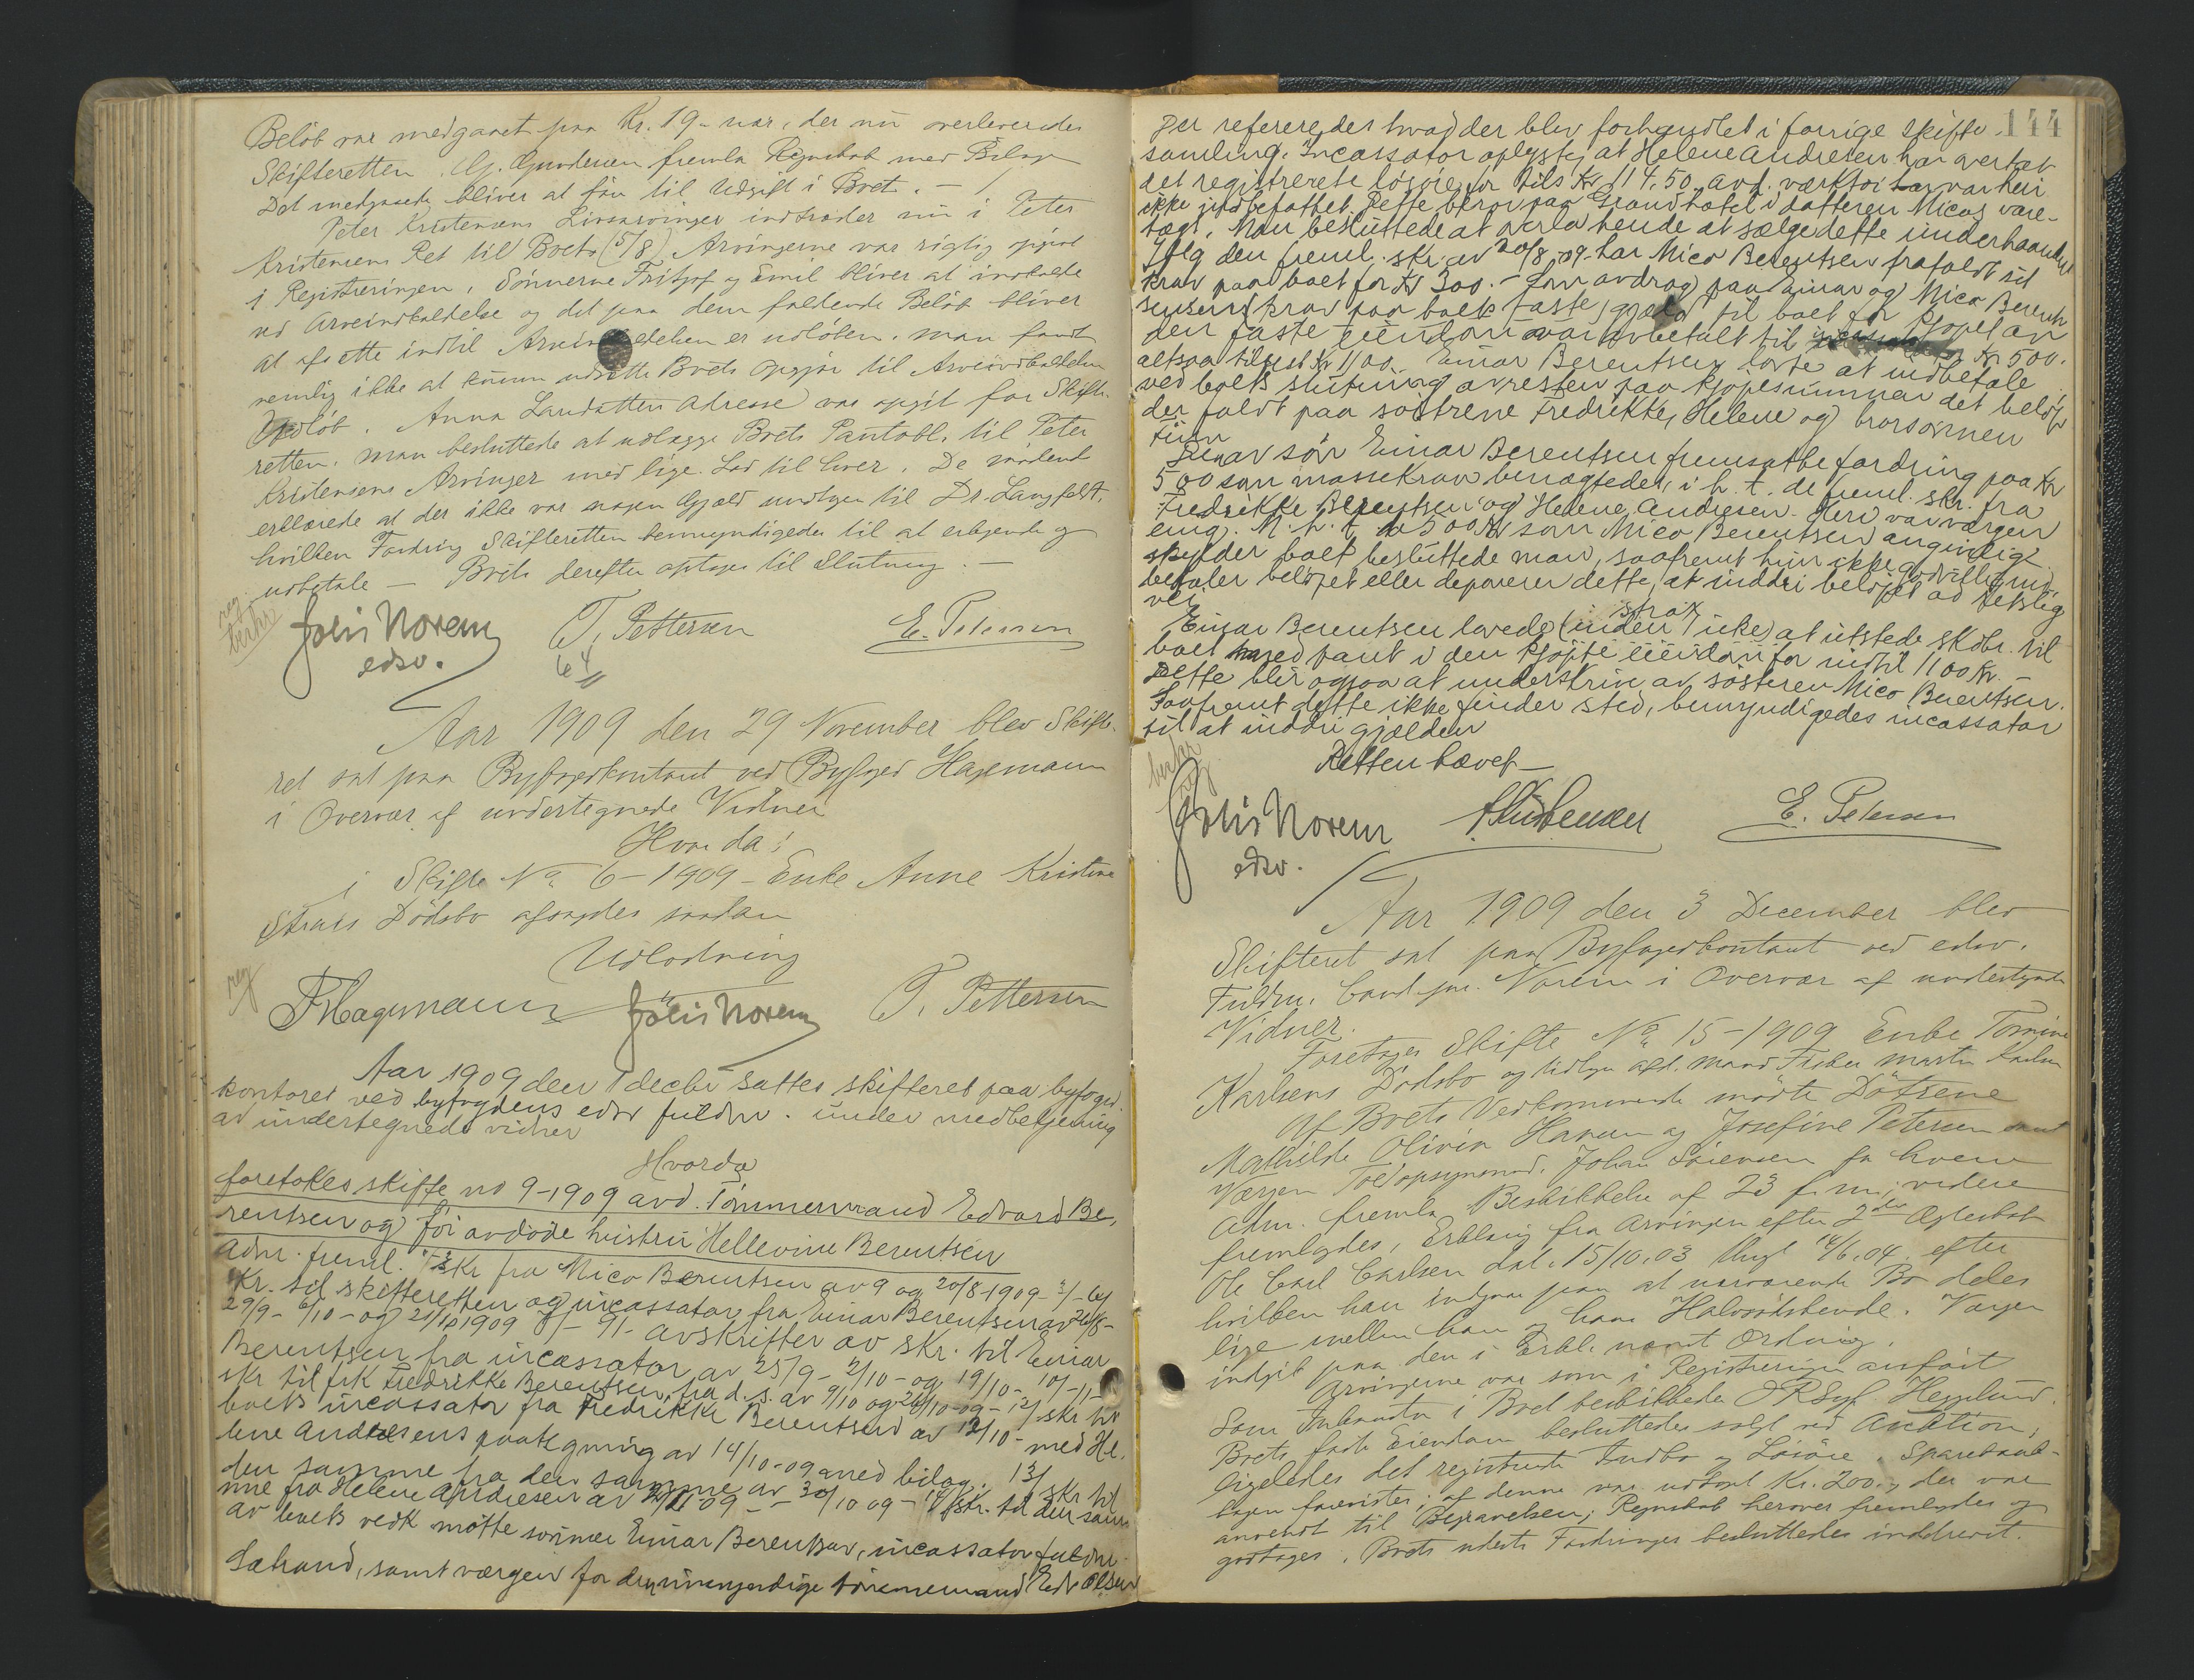 Beløb var medgaaet paa Kr. 19 - var, der nu overleveredes
Skifteretten. Gunderson fremla Regnskab med Bilag
Det medgaaede bliver at føre til Udgift i Boet. -
Peter Kristensens Livsarvinger indtræder nu i Peter
Kristensens Ret til Boets (5/8) Arvingerne var rigtig opført
i Registreringen. Sønnerne Fritjof og Emil bliver at indkalde
ved Arveindkaldelse og det paa dem faldende Beløb bliver
at afsætte indtil Arveindkaldelsen er udløben. man fandt
nemlig ikke at kunne udsætte Boets Opgjør til Arveindkaldelsen
Udløb. Anna Landsatters Adresse var opgit for Skifte-
retten. Man besluttede at udlægge Boets Pantobl. til Peter
Kristensens Arvinger med lige Lod til hver. De mødende
erklærede at der ikke var nogen Gjæld undtagen til Dr. Langfeldt,
hvilken Fordring Skifteretten bemyndigedes til at erkjende og
udbetale - Boets derefter optages til Slutning. -
reg.
berkr
Johs Norem T. Pettersen E. Petersen
edsv. 64
Aar 1909 den 29 November blev Skifte-
ret sat paa Byfogedkontoret ved Byfoged Hagemann
i Overvær af undertegnede Vidner
Hvor da:
i Skifte No 6 - 1909 - Enke Anne Kristine
Dødsbo afsagdes saadan
Udlodning
reg
F Hagemann Johs Norem T. Pettersen
Aar 1909 den 1 decbr sattes skifteret paa byfoged-
kontoret ved byfogdens edsv fuldm. under medbetjening
av undertegnede vidner
Hvorda
foretokes skifte no 9-1909 avd. Tømmermand Edvard Be-
rentsen og før avdøde hustru Hellevine Berentsen
adm. freml. skr fra Mico Berentsen av 9 og 20/8-1909-
skr. til skifteretten og incassator fra Einar Berentsen av
29/9 - 6/10 - og 21/10 1909 - 9/- avskrifter av skr. til Einar
Berentsen fra incassator av 25/9 - 2/10 - og 19/10 - 10/- 11-
skr til frk Fredrikke Berentsen fra d.s. av 9/10 og 26/10-09 - 12/ skr til
boets incassator fra Fredrikke Berentsen av 12/10 - med He-
lene Andresens paategning av 14/10-09 med bilag. 13/ skr til
den samme fra den samme av 30/10 09 - skr. til den sam-
me fra Helene Andresen av 09 -
av boets vedk møtte sønnen Einar Berentsen, incassator fuldm.
Sæland, samt værgen for den umyndige tømmermand Edv Olsen
144
Der refereredes hvad der blev forhandlet i forrige skifte-
samling. Incassator oplyste, at Helene Andresen har overtat
det registrerete løsøre for tils Kr 114.50. avd. værktøi var heri
ikke indbefattet. Dette beror paa Grand hotel i datteren Micos vare-
tægt. Man besluttede at overla hende at sælge dette underhaanden
Ifølg den freml. skr. av 20/8-09 har Mico Berentsen frafaldt sit
krav paa boet for Kr 300. - Som avdrag paa Einar og Mico Berent-
sens krav paa boet faste gjæld til boet for kjøpet av
den faste eiendom var avbetalt til Kr 500.
altsaa tilrest Kr 1100. Einar Berentsen lovte at indbetale
ved boets slutning av resten paa kjøpesummen det beløp
der faldt paa søstrene Fredrikke, Helene og brorsønnen
Finn
Den av søn Einar Berentsen fremsatte fordring paa Kr
500 som massekrav benægtedes, i h. t. de freml. skr. fra
Fredrikke Berentsen og Helene Andresen. Heri var værgen
enig. M. h. t. de 500 Kr som Mico Berentsen angivelig
skylder boet besluttede man, saafremt hun ikke godvillig ind-
betaler beløpet eller deponerer dette, at inddri beløpet ad retslig
vei
Einar Berentsen lovede (inden strax 1 uke) at utstede skdbr. til
boet med pant i den kjøpte eiendom for indtil 1100 Kr. -
Dette blir ogsaa at underskrive av søsteren Mico Berentsen.
Saafremt dette ikke finder sted, bemyndigedes incassator
til at inddri gjælden
berkr
reg
Retten hævet -
Johs Norem E. Petersen
edsv.
Aar 1909 den 3 December blev
Skifteret sat paa Byfogedkontoret ved edsv.
Fuldm. Cand. jur. Norem i Overvær af undertegnede
Vidner.
Foretoges Skifte No 15 - 1909 Enke Tomine
Karlsens Dødsbo og tidligere afd. mand Fisker Martin Karlsen
Af Boets Vedkommende mødte Døtrene
Mathilde Olivia Hansen og Josefine Petersen samt
Værgen Toldopsynsmand. Johan Sørensen for hvem
Adm. fremla Beskikkelse af 23 f. m.; videre
fremlagdes, Erklæring fra Arvingen efter 2det Ægteskab
Ole Carl Carlsen dat. 15/10.03 thingl 14/6.04. efter
hvilken han indgaar paa at nærværende Bo deles
lige mellem ham og hans Halvsødskende. Værgen
indgik paa den i Erkl. nævnt Ordning.
Arvingerne var som i Registreringen anført
Som Inkassator i Boet beskikkedes O.R.Sagf. Hegglund.
Boets faste Eiendom besluttedes solgt ved Auktion,
ligeledes det registrerede Indbo og Løsøre. Sparebank-
bogen forevistes; af denne var udtaget Kr. 200., der var
anvendt til Begravelsen; Regnskab herover fremlagdes og
godtoges. Boets udest. Fordringer besluttedes inddrevet.